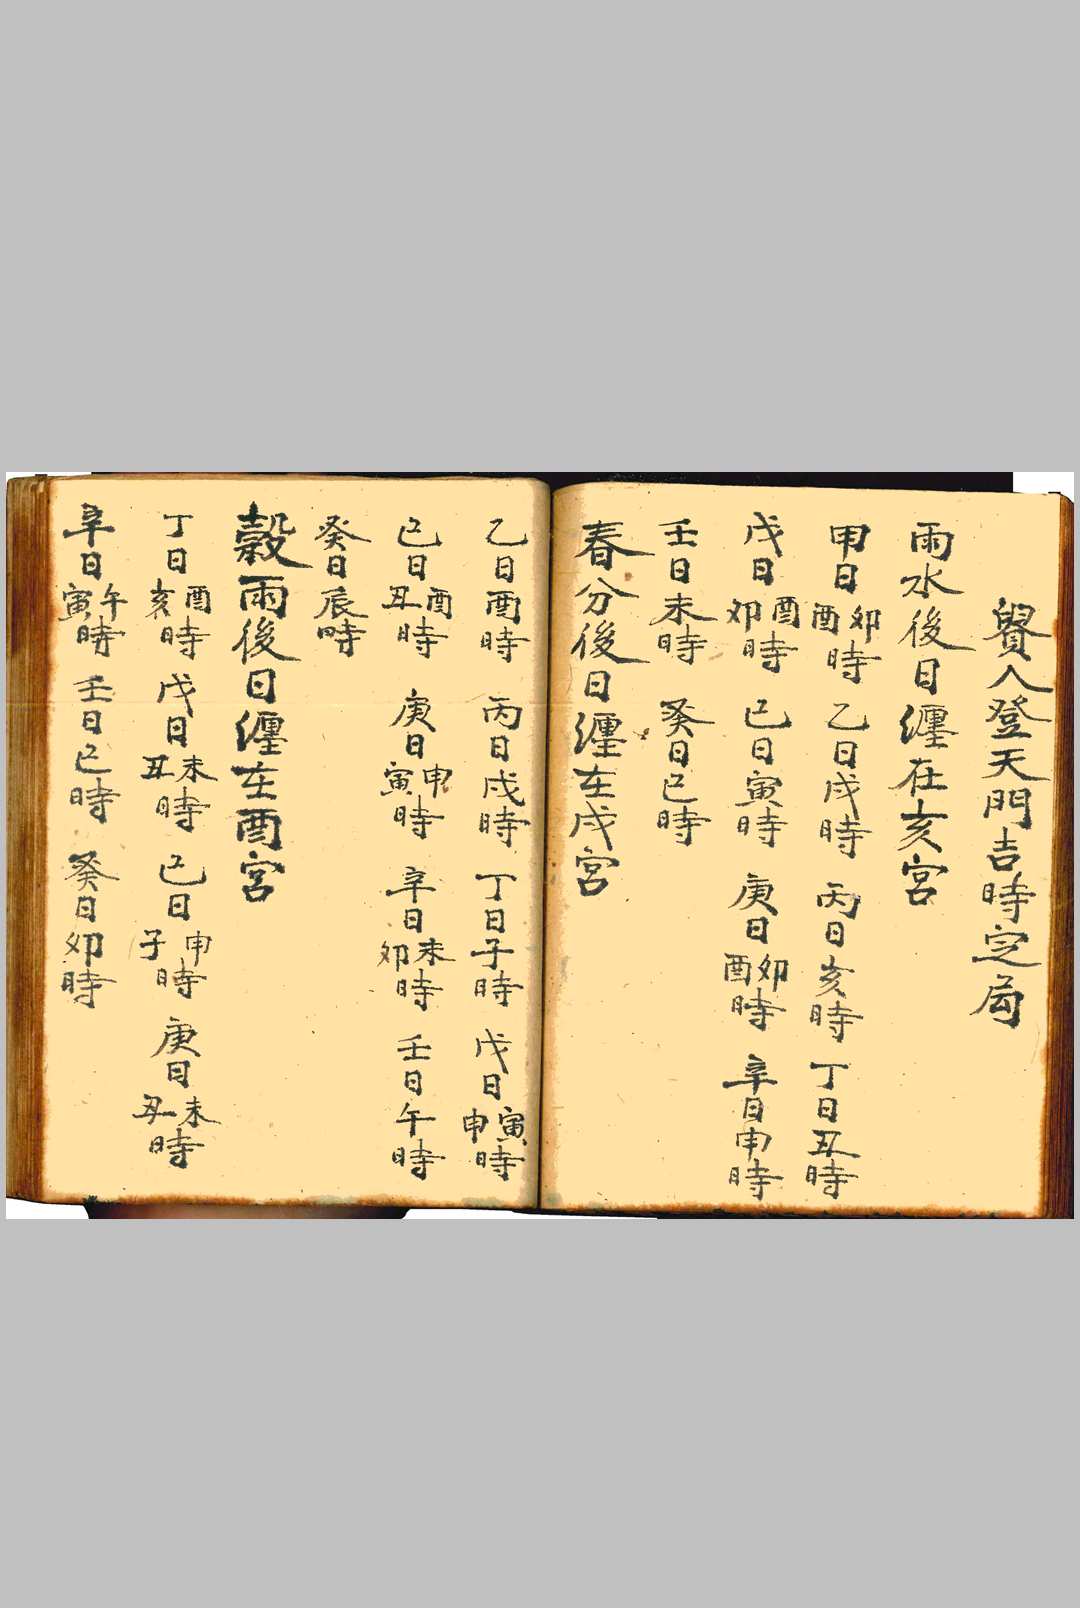 貴人登天門吉時定局
雨水後日纏在亥宮
甲日卯酉時 乙日戌時 丙日亥時 丁日丑時
戊日酉卯時 己日寅時 庚日卯酉時 辛日申時
壬日未時 癸日巳時
春分後日纏在戌宮
乙日酉時 丙日戌時 丁日子時 戊日寅申時
己日酉丑時 庚日申寅時 辛日未卯時 壬日午時
癸日辰時
穀雨後日纏在酉宮
丁日酉亥時 戊日未丑時 己日申子時 庚日未丑時
辛日午寅時 壬日巳時 癸日卯時